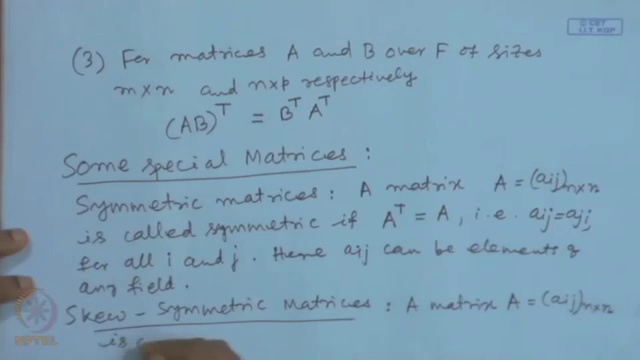 © CET
I.I.T. KGP
(3) For matrices A and B over F of sizes
m×n and n×p respectively
(AB)^T = B^T A^T
Some special Matrices :
Symmetric matrices : A matrix A = (aij)n×n
is called symmetric if A^T = A, i.e. aij = aji,
for all i and j. Here aij can be elements of
any field.
Skew - Symmetric Matrices : A matrix A = (aij)n×n
is c
NPTEL